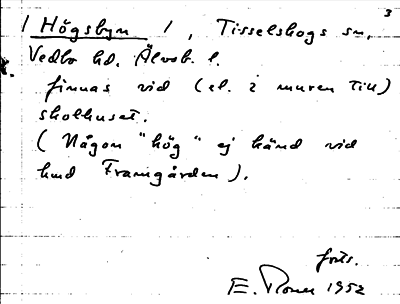 3
/ Högsbyn / , Tisselskogs sn,
Vedbo hd. Älvsb. l.
x.
finnas vid (el. i muren till)
skolhuset.
( Någon "hög" ej känd vid
hmd Framgården ).
forts.
E. 1952